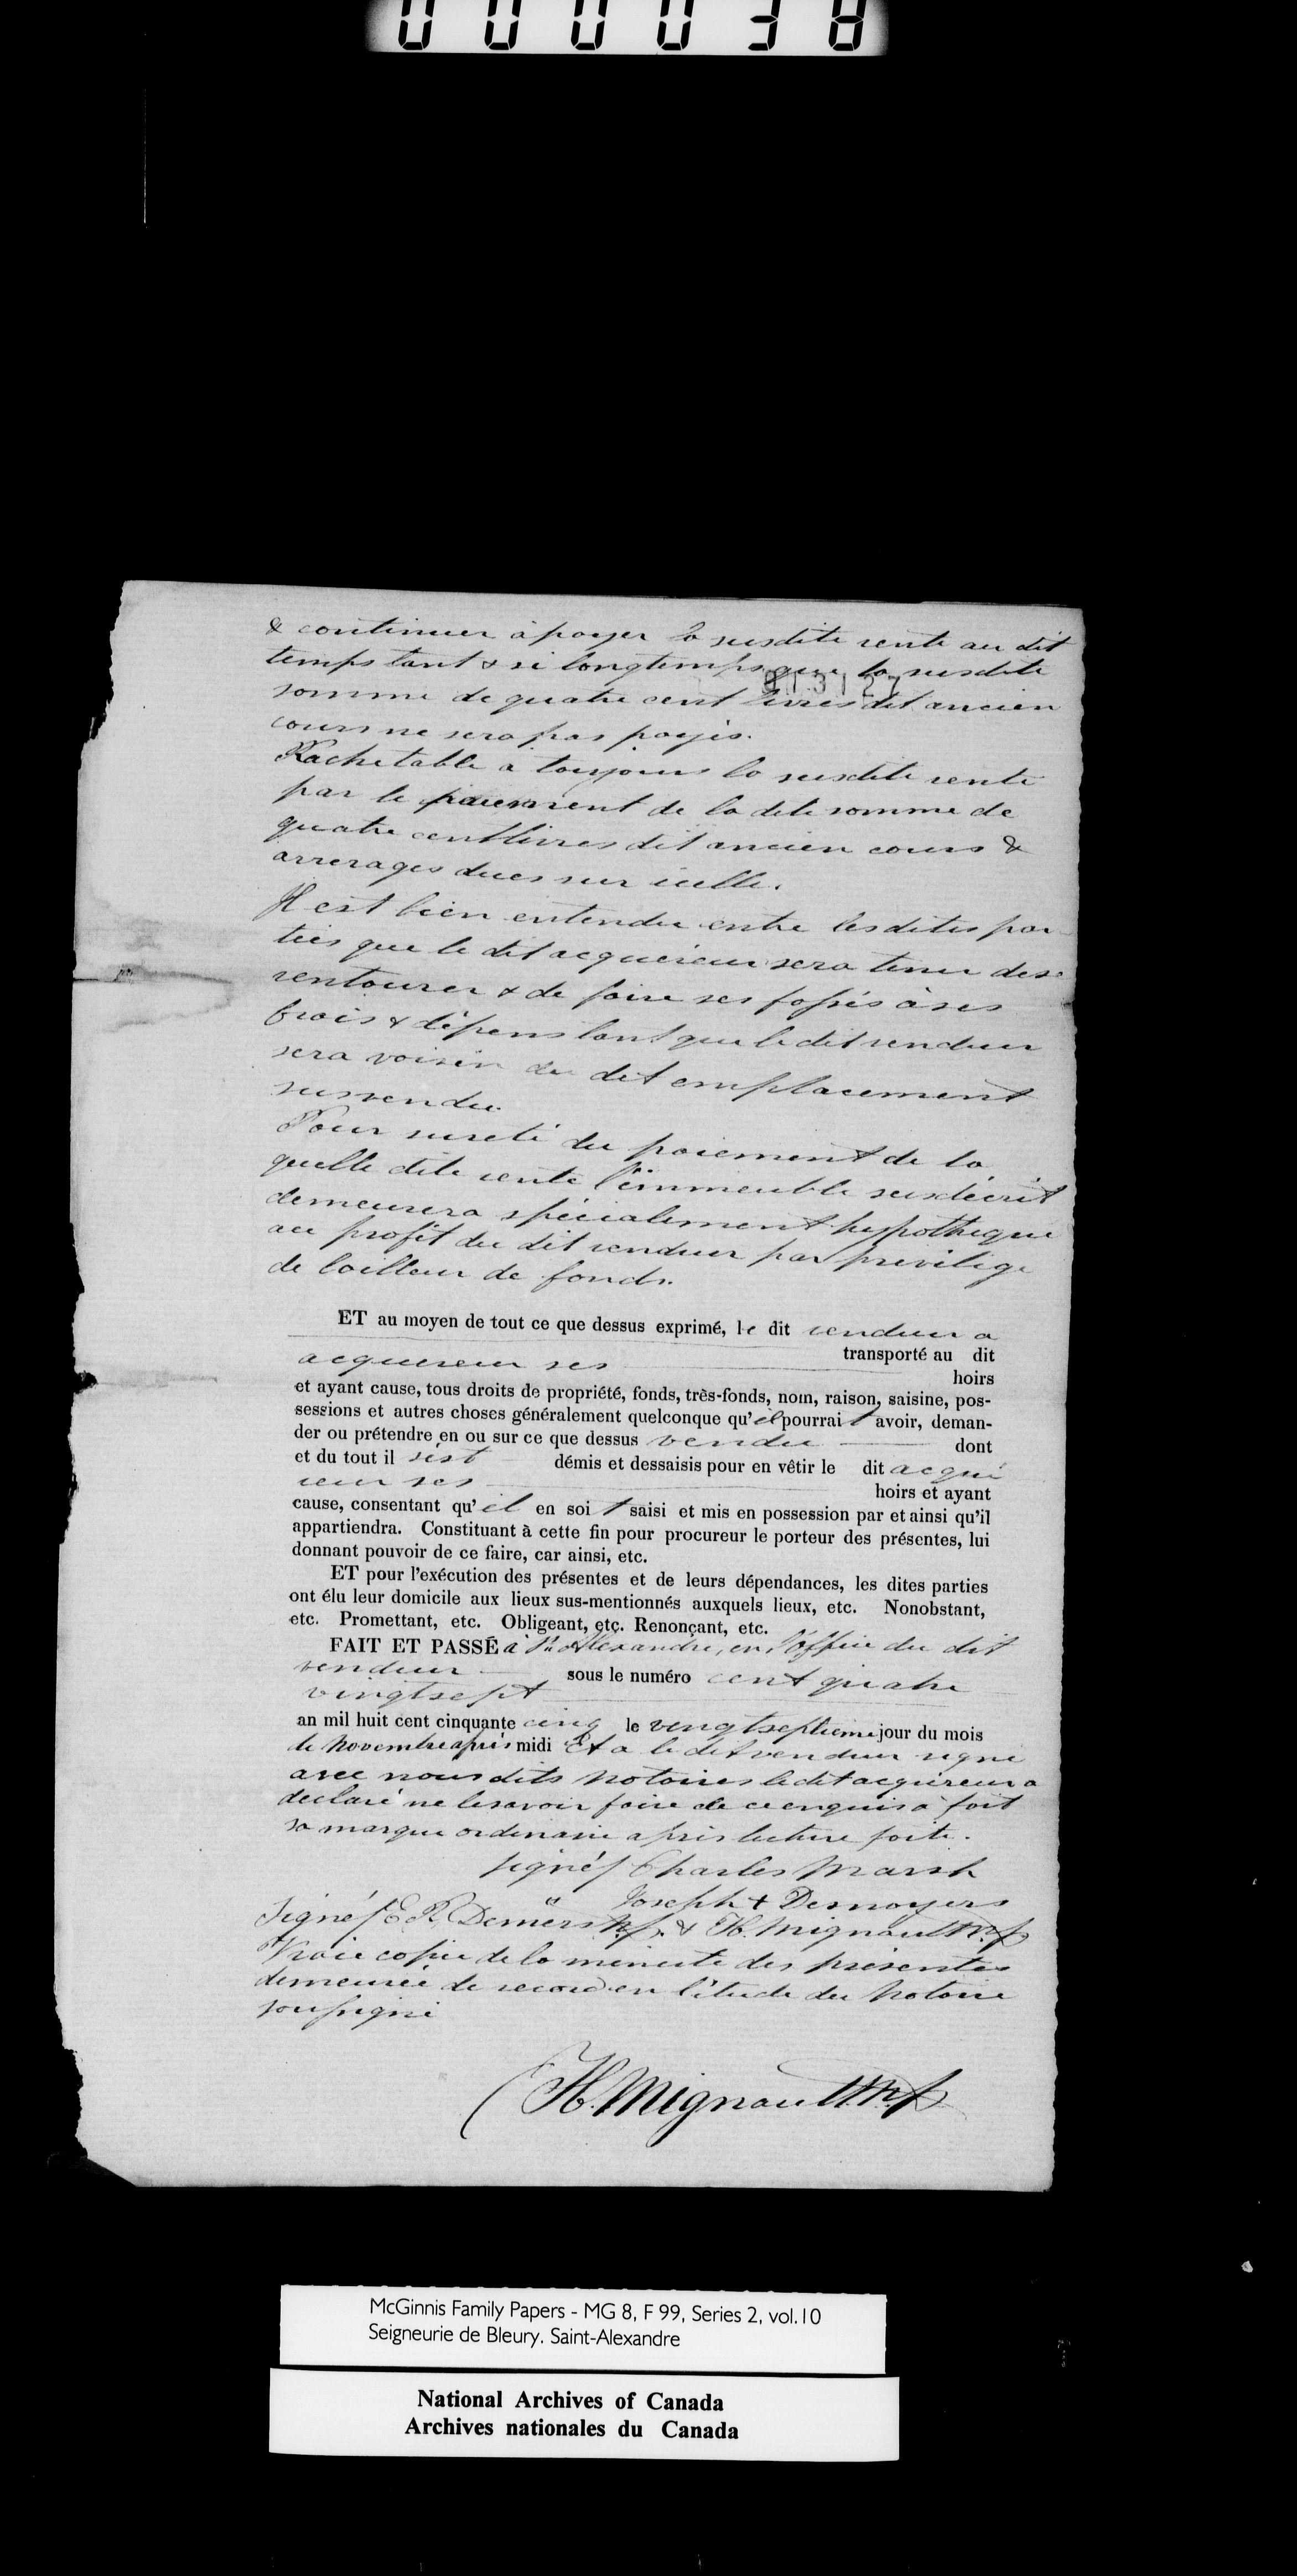 000038
& continuer à payer la susdite rente au dit
temps tant & si longtemps que la susdite
somme de quatre cent livres dit ancien
cours ne sera pas payés.
Rachetable a toujours la susdite rente
par le paiement de la dite somme de
quatre cent livres dit ancien cours &
arrerages dues sur icelle.
Il est bien entendu entre les dites par-
ties que le dit acquéreur sera tenu de se
rentourer & de faire ses fossés à ses
frais & dépens tant que le dit vendeur
sera voisin du dit emplacement
susvendu.
Pour sureté du paiement de la
quelle dite rente l'immeuble susdécrit
demeurera spécialement hypothequé
au profit du dit vendeur par privilége
de bailleur de fonds.
ET au moyen de tout ce que dessus exprimé, le dit vendeur a
transporté au dit
acquereur ses hoirs
et ayant cause, tous droits de propriété, fonds, très-fonds, nom, raison, saisine, pos-
sessions et autres choses généralement quelconque qu'il pourrait avoir, deman-
der ou prétendre en ou sur ce que dessus vendu dont
et du tout il s'est démis et dessaisis pour en vêtir le dit acqué
reur ses hoirs et ayant
cause, consentant qu'il en soit saisi et mis en possession par et ainsi qu'il
appartiendra. Constituant à cette fin pour procureur le porteur des présentes, lui
donnant pouvoir de ce faire, car ainsi, etc.
ET pour l'exécution des présentes et de leurs dépendances, les dites parties
ont élu leur domicile aux lieux sus-mentionnés auxquels lieux, etc. Nonobstant,
etc. Promettant, etc. Obligeant, etc. Renonçant, etc.
FAIT ET PASSÉ à St. Alexandre, en l'office du dit
vendeur sous le numéro cent quatre
vingt sept
an mil huit cent cinquante cinq le vingt septieme jour du mois
de Novembre après midi Et a le dit vendeur signé
avec nous dits Notaires le dit acquéreur a
declaré ne le savoir faire de ce enquis a fait
sa marque ordinaire après lecture faite.
signé/ Charles Marsh
" Joseph + Desnoyers
Signé/ E. R. Demers N.P. & H. Mignault N.P.
Vraie copie de la minute des présentes
demeurée de record en l'étude du Notaire
soussigné
H. Mignault N.P.
McGinnis Family Papers - MG 8, F 99, Series 2, vol.10
Seigneurie de Bleury. Saint-Alexandre
National Archives of Canada
Archives nationales du Canada